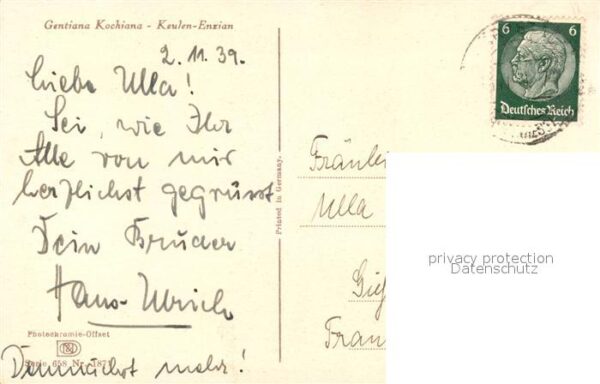 Gentiana Kochiana - Keulen-Enzian
2. 11. 39.
Liebe Ulla!
Sei, wie Ihr
Alle von mir
herzlichst gegrüsst
Dein Bruder
Hans-Ulrich
Photochromie-Offset
Serie 658 Nr. 187
Demnächst mehr!
Printed in Germany.
6 6
Deutsches Reich
Fräulei
Ulla
Gieß
Fran
privacy protection
Datenschutz